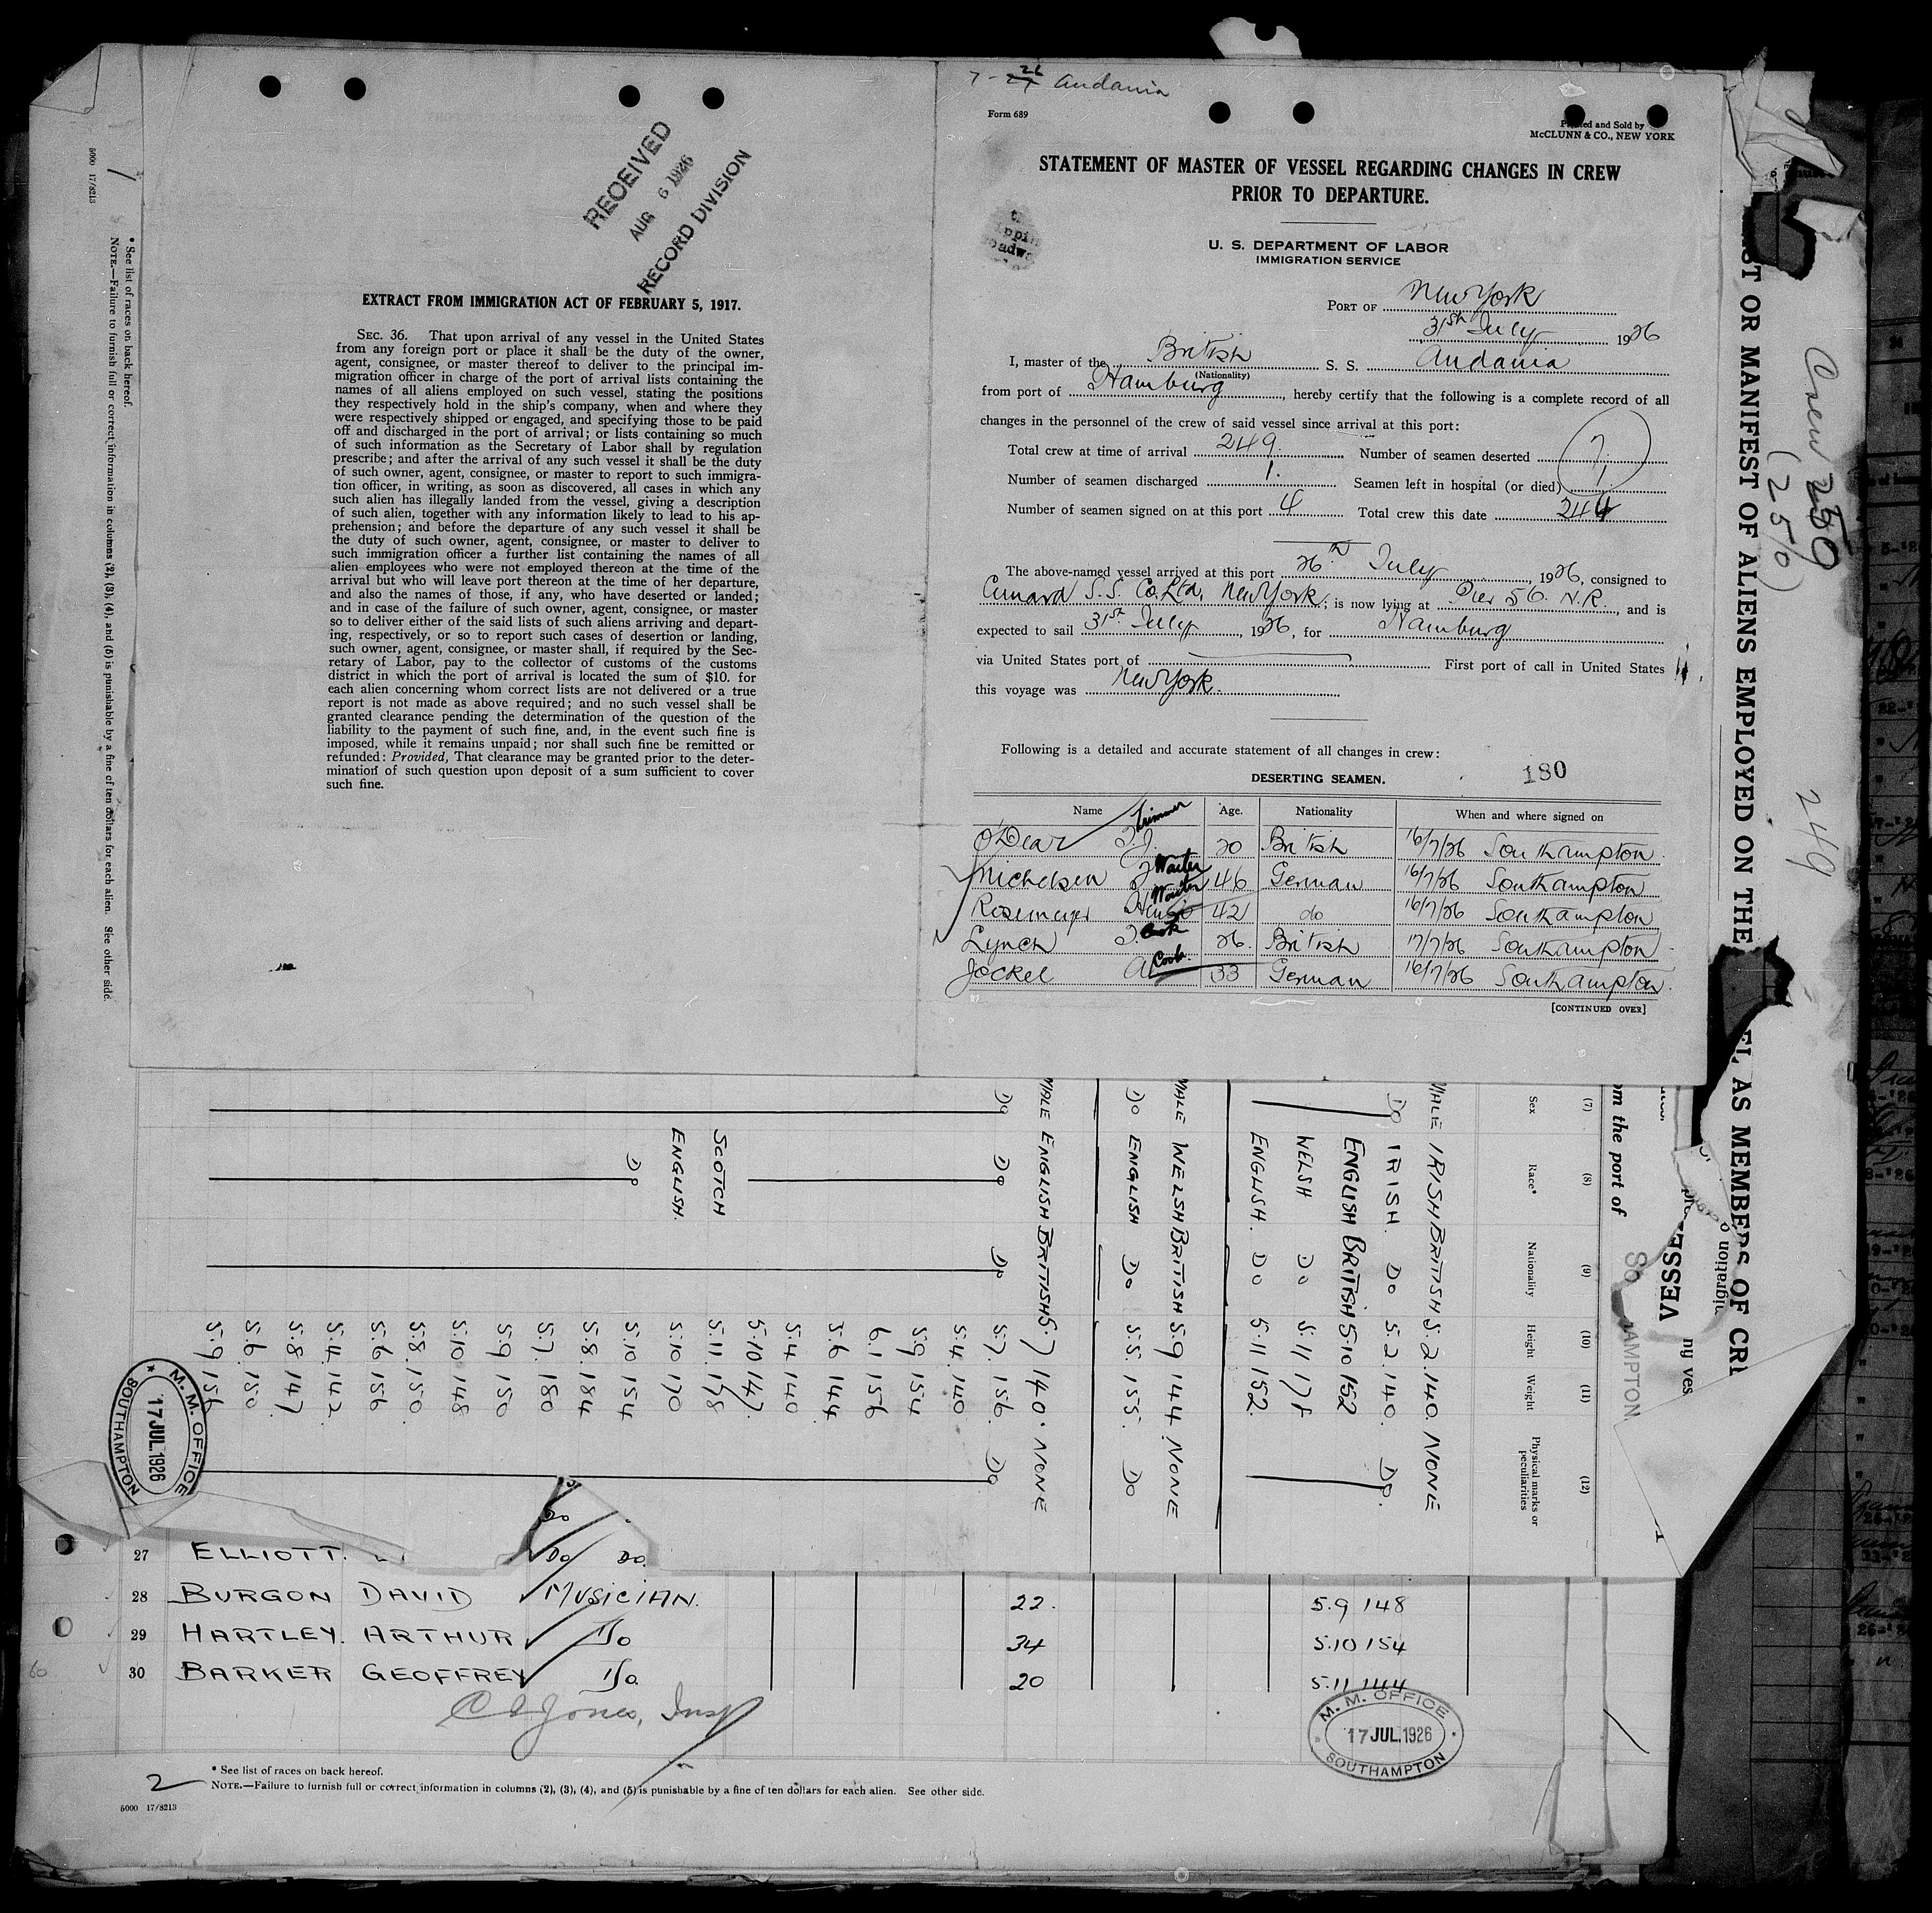 RECEIVED
AUG 6 1926
RECORD DIVISION
EXTRACT FROM IMMIGRATION ACT OF FEBRUARY 5, 1917.
SEC. 36. That upon arrival of any vessel in the United States
from any foreign port or place it shall be the duty of the owner,
agent, consignee, or master thereof to deliver to the principal im-
migration officer in charge of the port of arrival lists containing the
names of all aliens employed on such vessel, stating the positions
they respectively hold in the ship's company, when and where they
were respectively shipped or engaged, and specifying those to be paid
off and discharged in the port of arrival; or lists containing so much
of such information as the Secretary of Labor shall by regulation
prescribe; and after the arrival of any such vessel it shall be the duty
of such owner, agent, consignee, or master to report to such immigra-
tion officer, in writing, as soon as discovered, all cases in which any
such alien has illegally landed from the vessel, giving a description
of such alien, together with any information likely to lead to his ap-
prehension; and before the departure of any such vessel it shall be
the duty of such owner, agent, consignee, or master to deliver to
such immigration officer a further list containing the names of all
alien employees who were not employed thereon at the time of the
arrival but who will leave port thereon at the time of her departure,
and also the names of those, if any, who have deserted or landed;
and in case of the failure of such owner, agent, consignee, or master
so to deliver either of the said lists of such aliens arriving and depart-
ing, respectively, or so to report such cases of desertion or landing,
such owner, agent, consignee, or master shall, if required by the Sec-
retary of Labor, pay to the collector of customs of the customs
district in which the port of arrival is located the sum of $10. for
each alien concerning whom correct lists are not delivered or a true
report is not made as above required; and no such vessel shall be
granted clearance pending the determination of the question of the
liability to the payment of such fine, and, in the event such fine is
imposed, while it remains unpaid; nor shall such fine be remitted or
refunded: Provided, That clearance may be granted prior to the deter-
mination of such question upon deposit of a sum sufficient to cover
such fine.
Andania
Form 689
Printed and Sold by
McCLUNN & CO., NEW YORK
STATEMENT OF MASTER OF VESSEL REGARDING CHANGES IN CREW
PRIOR TO DEPARTURE.
U. S. DEPARTMENT OF LABOR
IMMIGRATION SERVICE
PORT OF New York
31st July 1926
I, master of the British S. S. Andania
(Nationality)
from port of Hamburg, hereby certify that the following is a complete record of all
changes in the personnel of the crew of said vessel since arrival at this port:
Total crew at time of arrival 249. Number of seamen deserted 7.
Number of seamen discharged 1. Seamen left in hospital (or died) 1.
Number of seamen signed on at this port 4 Total crew this date 244
The above-named vessel arrived at this port 26th July, 1926, consigned to
Cunard S.S. Co. Ltd, New York; is now lying at Pier 56. N.R., and is
expected to sail 31st July, 1926, for Hamburg
via United States port of First port of call in United States
this voyage was New York.
Following is a detailed and accurate statement of all changes in crew:
180
DESERTING SEAMEN.
Name Age. Nationality When and where signed on
O'Dear T.J. Trimmer 20 British 16/7/26 Southampton
Michelsen J Waiter 46 German 16/7/26 Southampton
Rosemeyer Waiter 42 do 16/7/26 Southampton
Lynch J. Cook 26. British 17/7/26 Southampton
Jockel A Cook. 33 German 16/7/26 Southampton.
[CONTINUED OVER]
5000 17/8213
* See list of races on back hereof.
NOTE.—Failure to furnish full or correct information in columns (2), (3), (4), and (5) is punishable by a fine of ten dollars for each alien. See other side.
OR MANIFEST OF ALIENS EMPLOYED ON THE
AS MEMBERS OF
Crew 250
(250)
249
om the port of
VESSE
ny ves
(7) (8) (9) (10) (11) (12)
Sex Race* Nationality Height Weight Physical marks or peculiarities
MALE IRISH BRITISH 5.2 140. NONE
DO IRISH. DO 5.2. 140. DO.
ENGLISH BRITISH 5.10 152
WELSH DO 5.11
ENGLISH. DO 5.11 152.
MALE WELSH BRITISH 5.9 144 NONE
DO ENGLISH DO 5.5. 155. DO
MALE ENGLISH BRITISH 5.7 140. NONE
DO DO DO 5.7. 156. DO
5.4. 140
5.9 154
6.1 156
5.6 144
5.4 140
5.10 147.
SCOTCH 5.11. 178
ENGLISH. 5.10 170
DO 5.10 154
5.8. 184
5.7. 180
5.9 150
5.10 148
5.8. 150.
5.6 156
5.4. 142
5.8 147
5.6. 150
5.9 156
M. M. OFFICE
17 JUL. 1926
SOUTHAMPTON
27 ELLIOTT. DO DO.
28 BURGON DAVID MUSICIAN. 22. 5.9 148
29 HARTLEY. ARTHUR DO 34 5.10 154
30 BARKER GEOFFREY DO. 20 5.11 144
Jones, Insp
M. M. OFFICE
17 JUL. 1926
SOUTHAMPTON
* See list of races on back hereof.
2
NOTE.—Failure to furnish full or correct information in columns (2), (3), (4), and (5) is punishable by a fine of ten dollars for each alien. See other side.
5000 17/8213